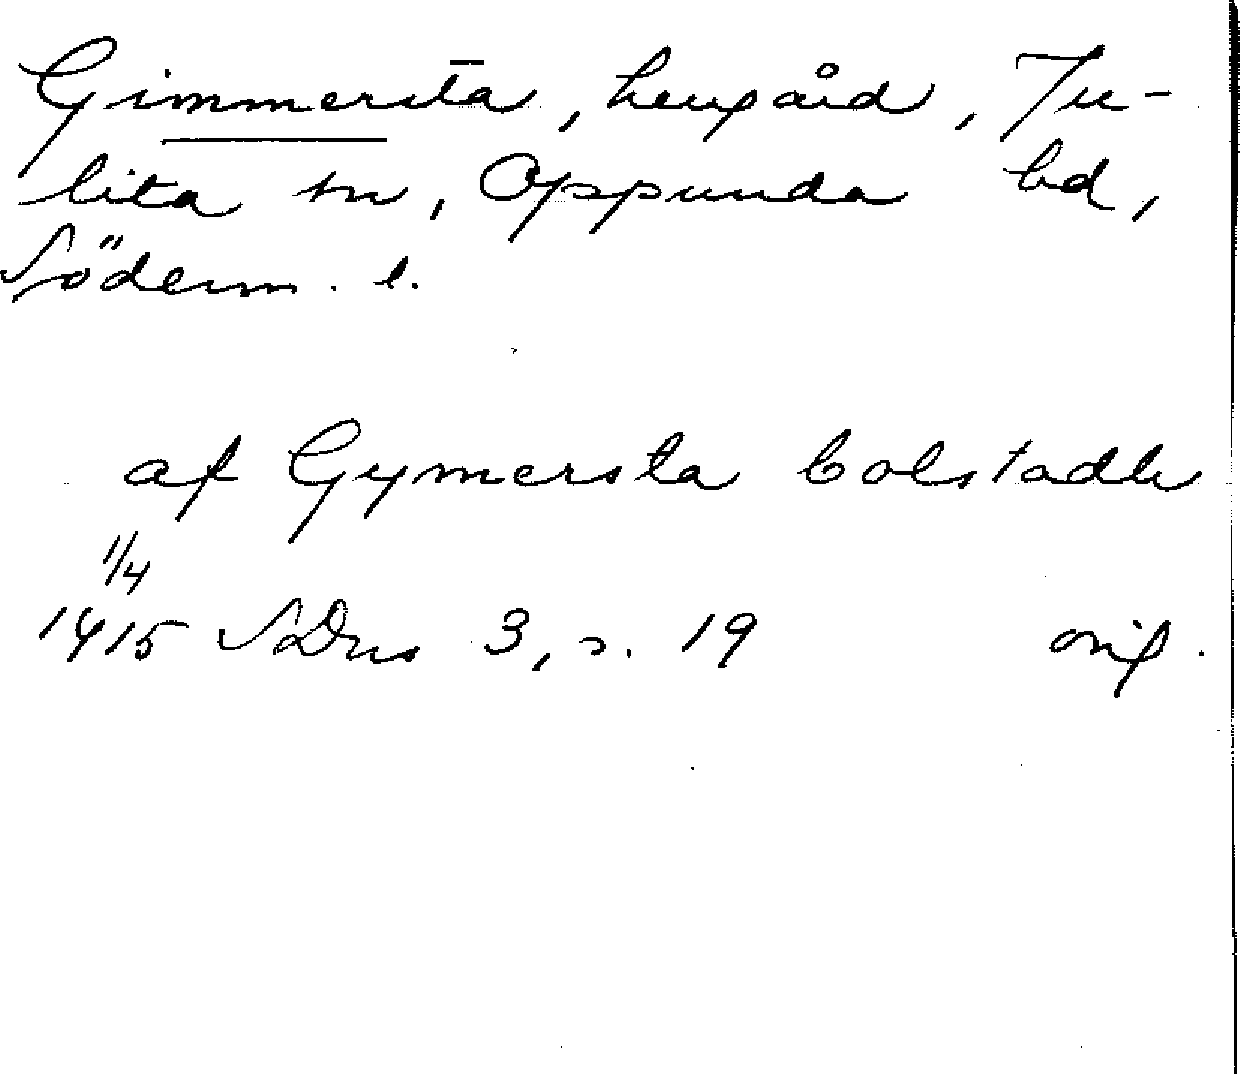 Gimmersta, herrgård, Ju-
lita sn, Oppunda hd,
Söderm. l.
af Gymersta bolstadh
11/4
1415 SDns 3, s. 19 orig.